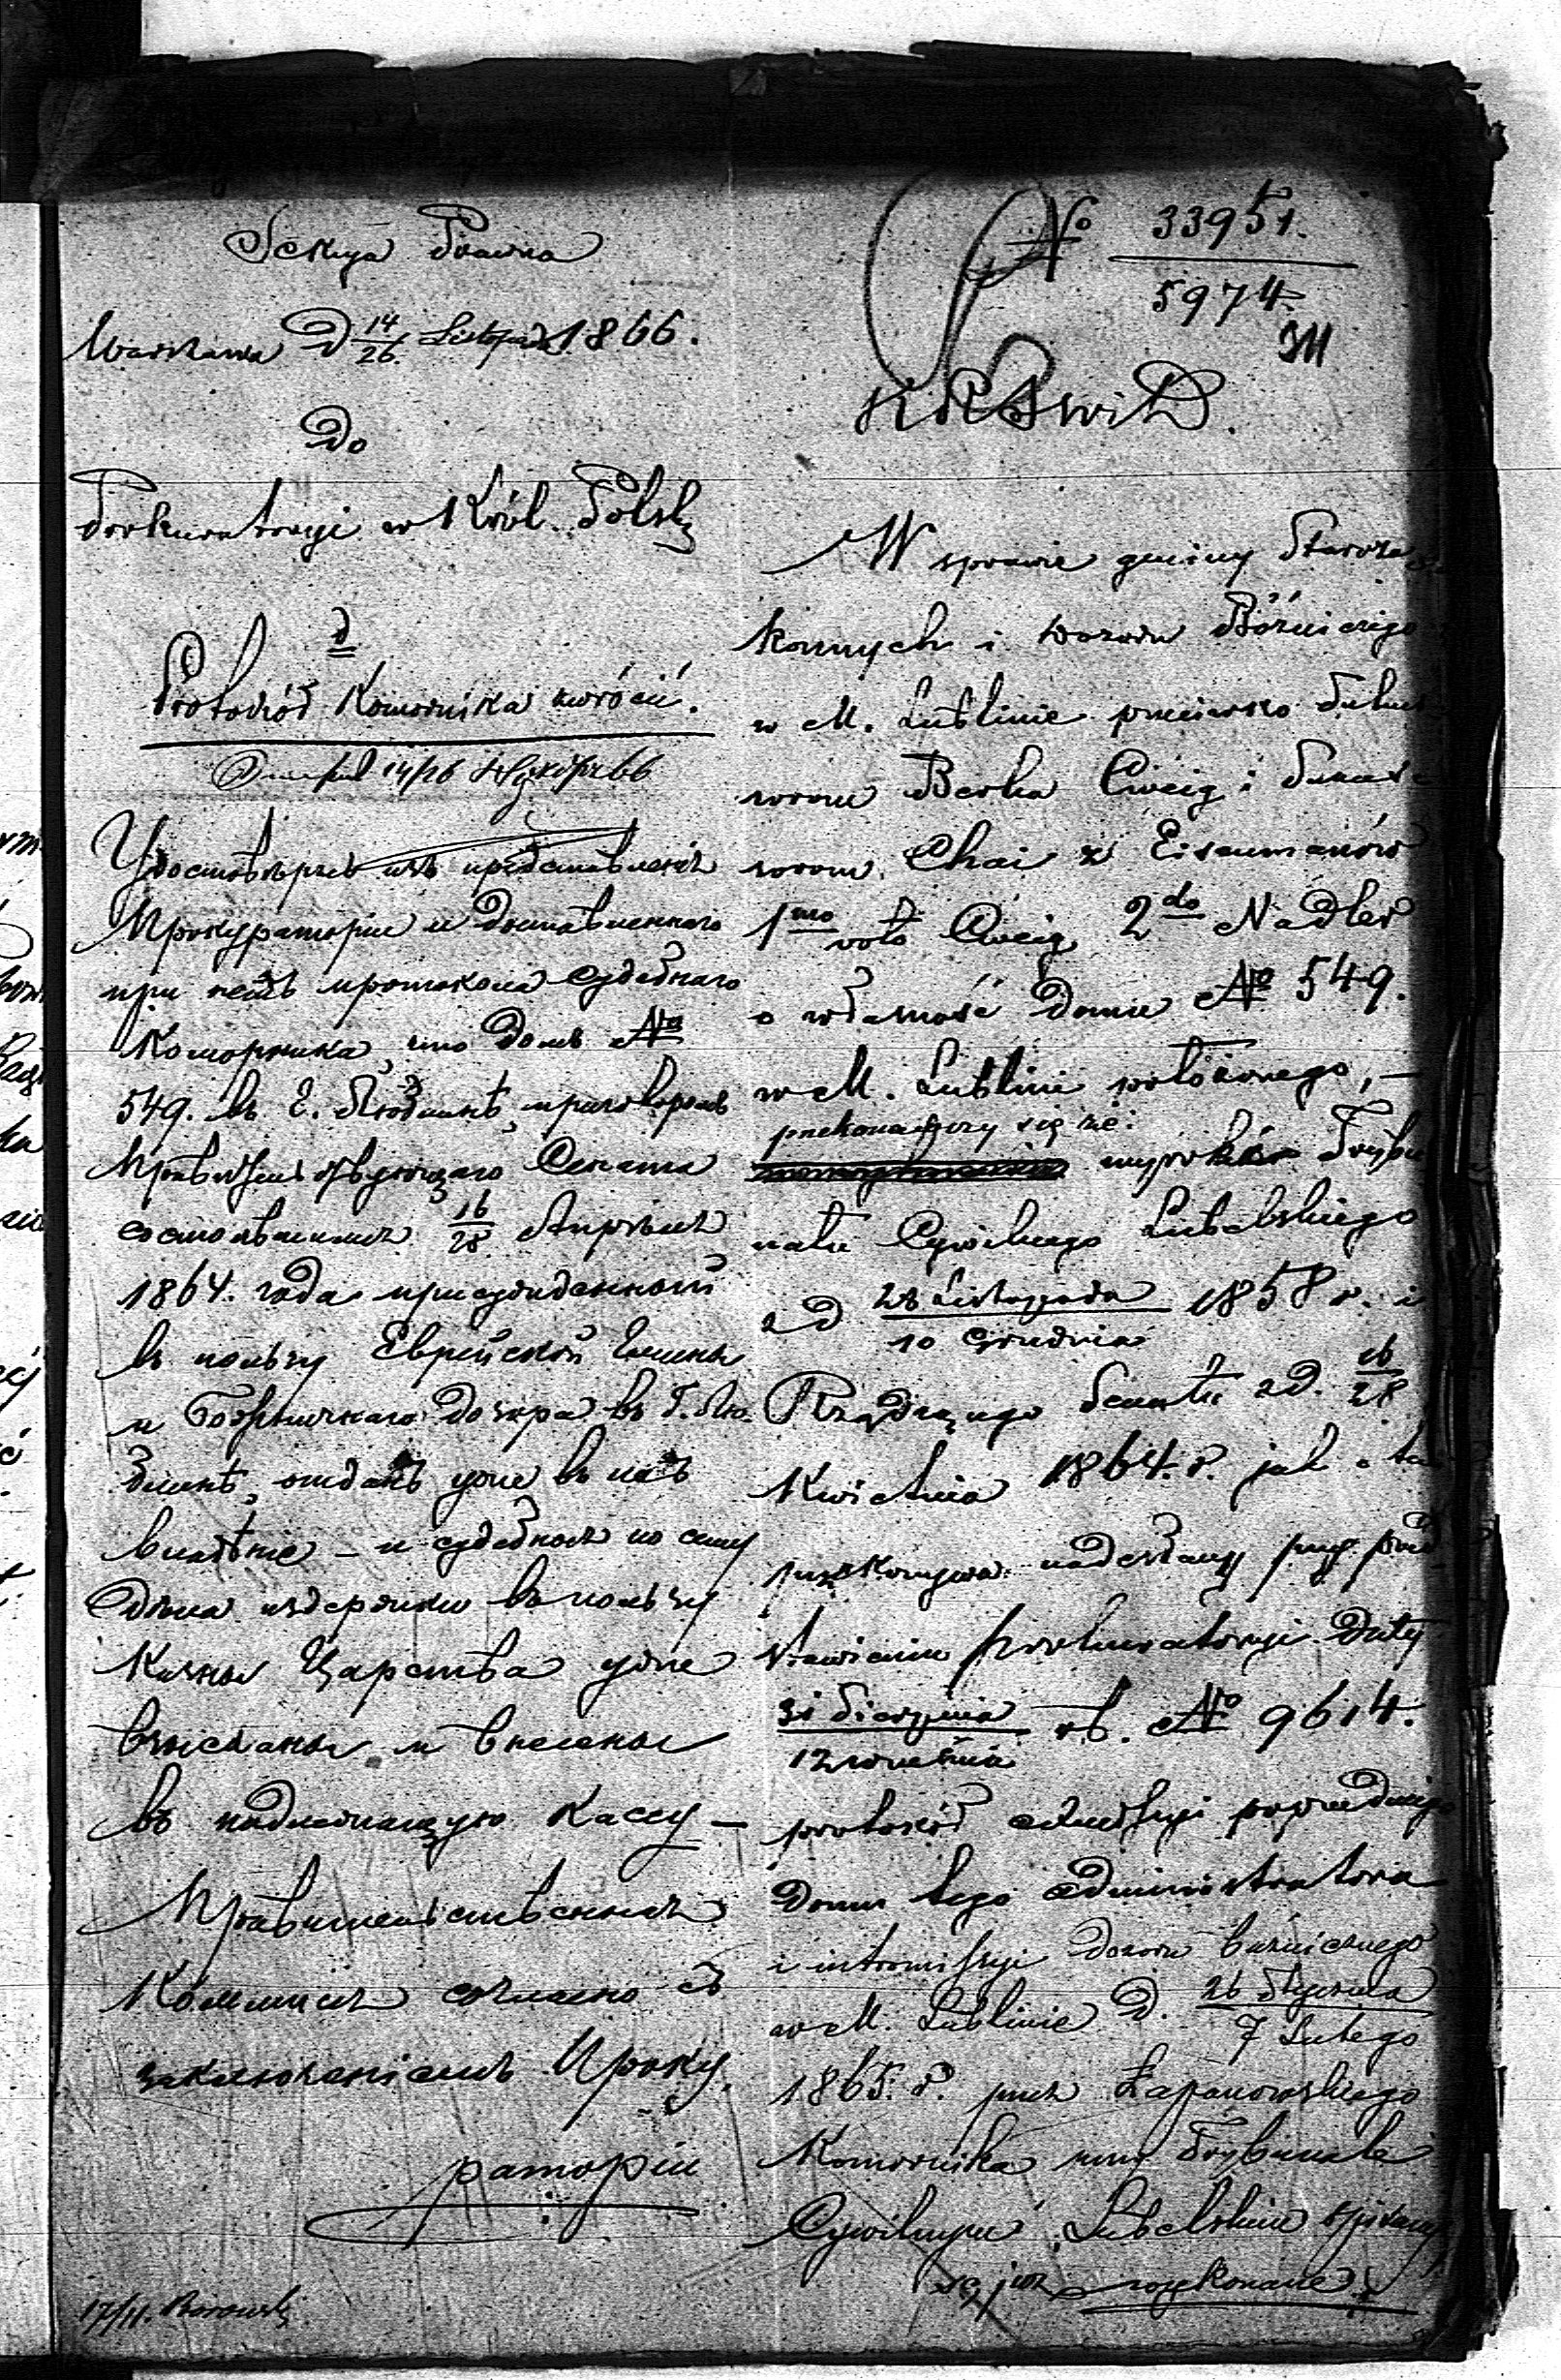 Sekcya Prawna
Warszawa D 14/26 Listopada 1866.
Do
Prokuratoryi w Król. Polsk
Protokół Komornika zwrócić.
14/26 66
Удостовѣрясь изъ представленія
Прокураторіи и доставленнаго
при немъ протокола Судебнаго
Коморника, что домъ №
549. въ г. Люблинѣ, приговоромъ
Правительствующаго Сената
состоявшимся 16/28 Апрѣля
1864. года присужденный
въ пользу Еврейской Гмины
и Божничнаго дозора въ Г. Лю-
блинѣ, отданъ уже въ ихъ
владѣніе – и судебныя по сему
Дѣлу издержки въ пользу
Казны Царства уже
взысканы и внесены
въ надлежащую Кассу –
Правительственная
Коммисія согласно съ
заключеніемъ Проку-
раторіи
17/11. Borowski
№ 33951.
5974
KRSWiD.
W sprawie gminy Staroza
konnych i Dozoru Bóżniczego
w M. Lublinie przeciwko Sukces
sorom Berka Cweig i Sukces
sorom Chai z Eisenmanów
1mo voto Cweig 2do Nadler
o własność Domu № 549.
w M. Lublinie położonego, –
przekonawszy się że:
wyroki Trybu
nału Cywilnego Lubelskiego
z D 28 Listopada / 10 Grudnia 1858 r. i
Rządzącego Senatu z D. 16/28
Kwietnia 1864. r. jak
przekonywa nadesłany przy przed
stawieniu Prokuratoryi Daty
31 Sierpnia / 12 Września rb. № 9614.
protokół exmissyi poprzedniego
Domu tego administratora
i intromissyi dozoru bóżniczego
w M. Lublinie D. 26 Stycznia / 7 Lutego
1865. r. przez Łapanowskiego
Komornika przy Trybunale
Cywilnym Lubelskim spisany
są już wykonane